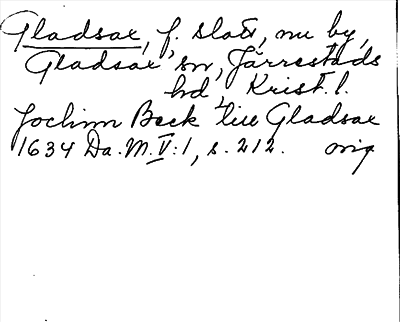 Gladsax, f. slott, nu by,
Gladsax sn, Järrestads
hd, Krist. l.
Jochim Beck till Gladsax
1634 Da. M. V:1, s. 212. orig